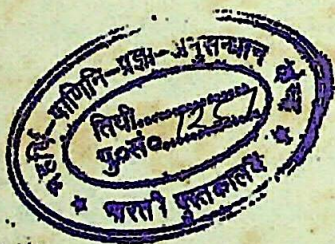 महर्षि-पाणिनि-प्रज्ञा-अनुसन्धान केन्द्र
तिथी..............
पु०सं० 1251
* भारती पुस्तकालय *